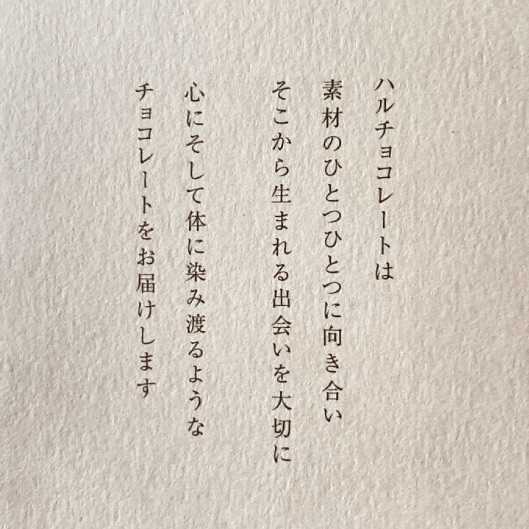 ハルチョコレートは
素材のひとつひとつに向き合い
そこから生まれる出会いを大切に
心にそして体に染み渡るような
チョコレートをお届けします